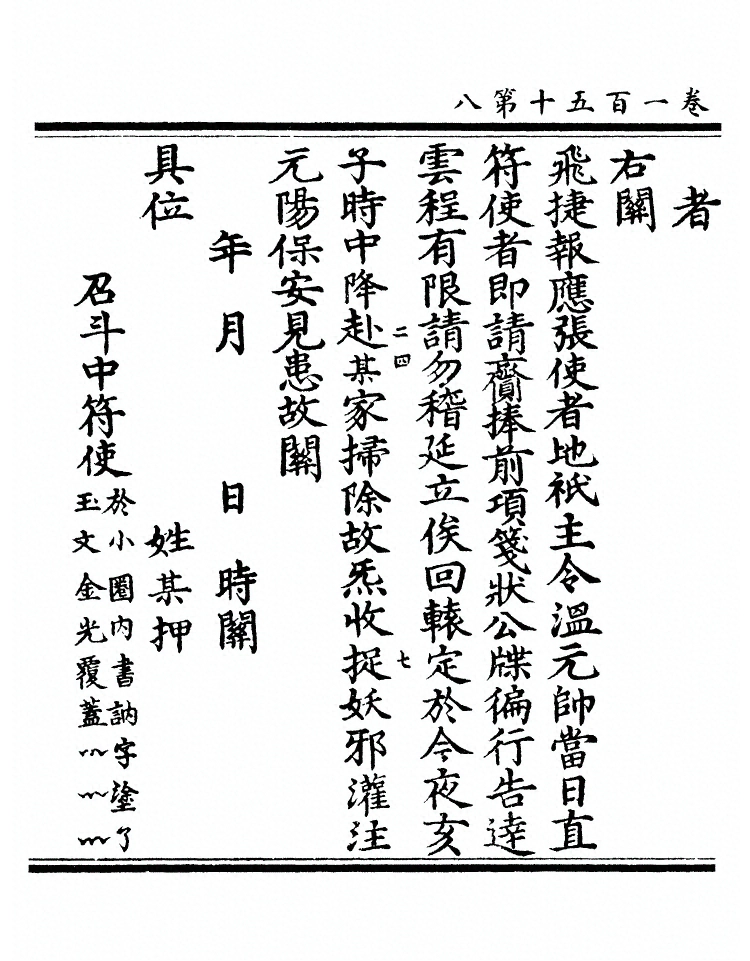 卷一百五十第八
者
右關
飛捷報應張使者地祇主令溫元帥當日直
符使者即請齎捧前項箋狀公牒徧行告達
雲程有限請勿稽延立俟回轅定於今夜亥
二四
七
子時中降赴某家掃除故炁收捉妖邪灌注
元陽保安見患故關
年 月 日 時關
具位 姓某押
召斗中符使
於小圈内書訥字塗了
玉文金光覆蓋